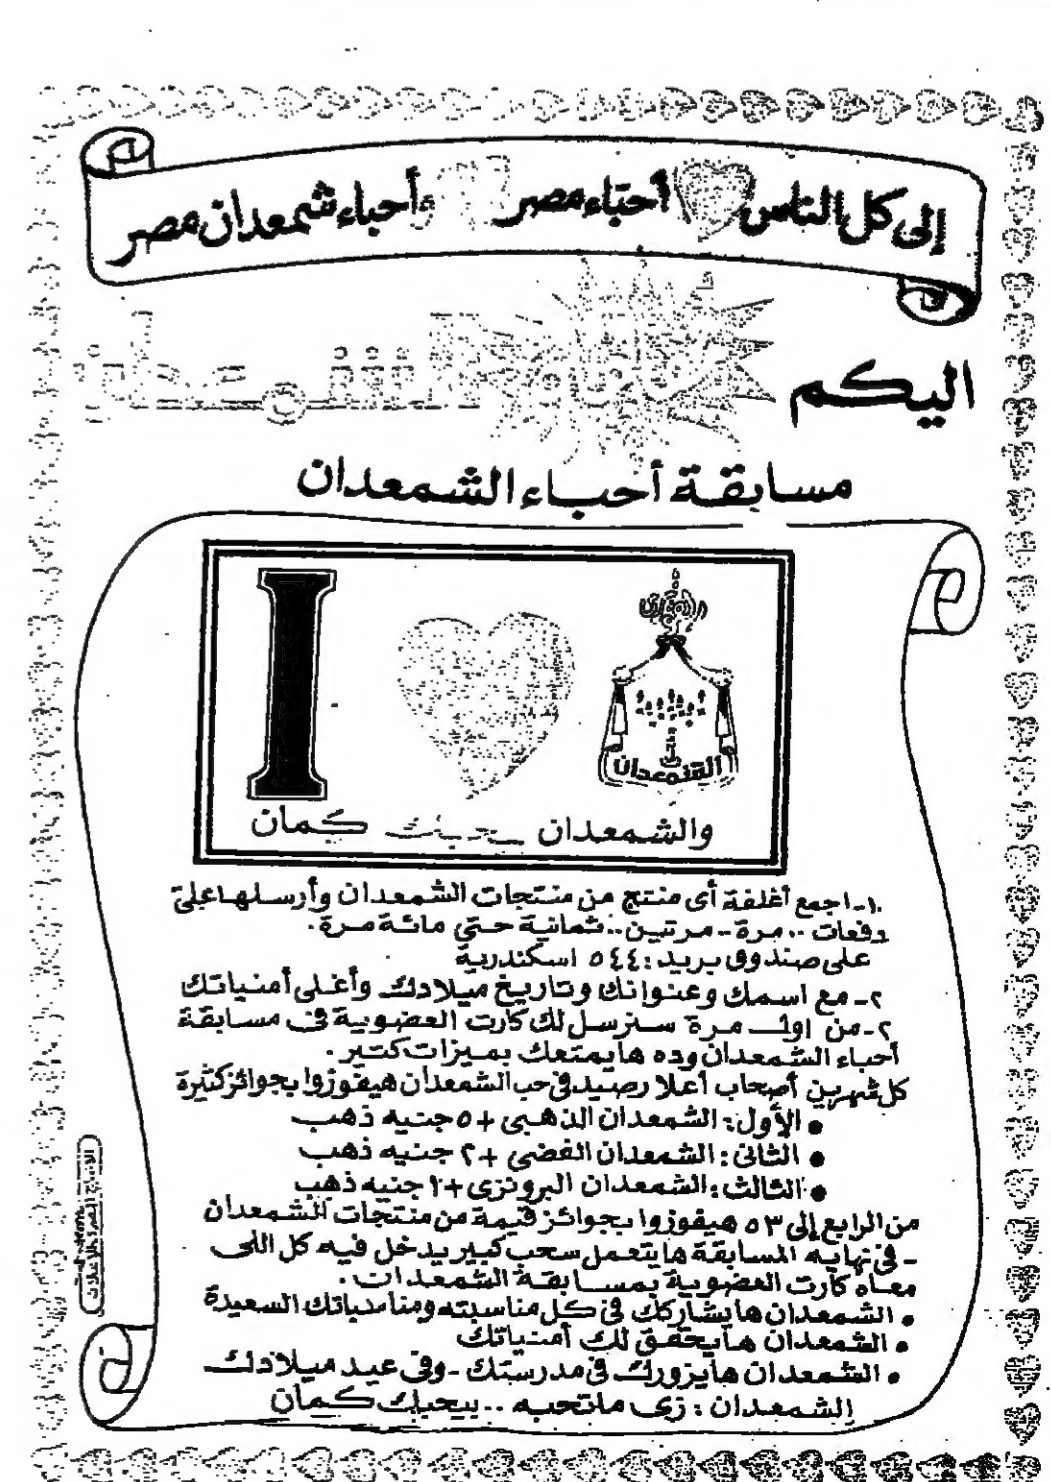 إلى كل الناس أحباء مصر وأحباء شمعدان مصر
اليكم
الشمعدان
مسابقة أحباء الشمعدان
I
الشمعدان
والشمعدان بيحبك كمان
١- اجمع أغلفة أى منتج من منتجات الشمعدان وأرسلها على
دفعات .. مرة - مرتين .. ثمانية حتى مائة مرة .
على صندوق بريد : ٥٤٤ اسكندرية
٢- مع اسمك وعنوانك وتاريخ ميلادك وأغلى أمنياتك
٢- من اول مرة سنرسل لك كارت العضوية فى مسابقة
أحباء الشمعدان وده هايمتعك بميزات كتير .
كل شهرين أصحاب أعلا رصيد فى حب الشمعدان هيفوزوا بجوائز كثيرة
• الأول : الشمعدان الذهبى + ٥ جنيه ذهب
• الثانى : الشمعدان الفضى + ٢ جنيه ذهب
• الثالث : الشمعدان البرونزى + ١ جنيه ذهب
من الرابع إلى ٥٣ هيفوزوا بجوائز قيمة من منتجات الشمعدان
- فى نهاية المسابقة هايتعمل سحب كبير يدخل فيه كل اللى
معاه كارت العضوية بمسابقة الشمعدان .
• الشمعدان هايشاركك فى كل مناسبته ومناسباتك السعيدة
• الشمعدان هايحقق لك أمنياتك
• الشمعدان هايزورك فى مدرستك - وفى عيد ميلادك
الشمعدان : زى ماتحبه .. بيحبك كمان